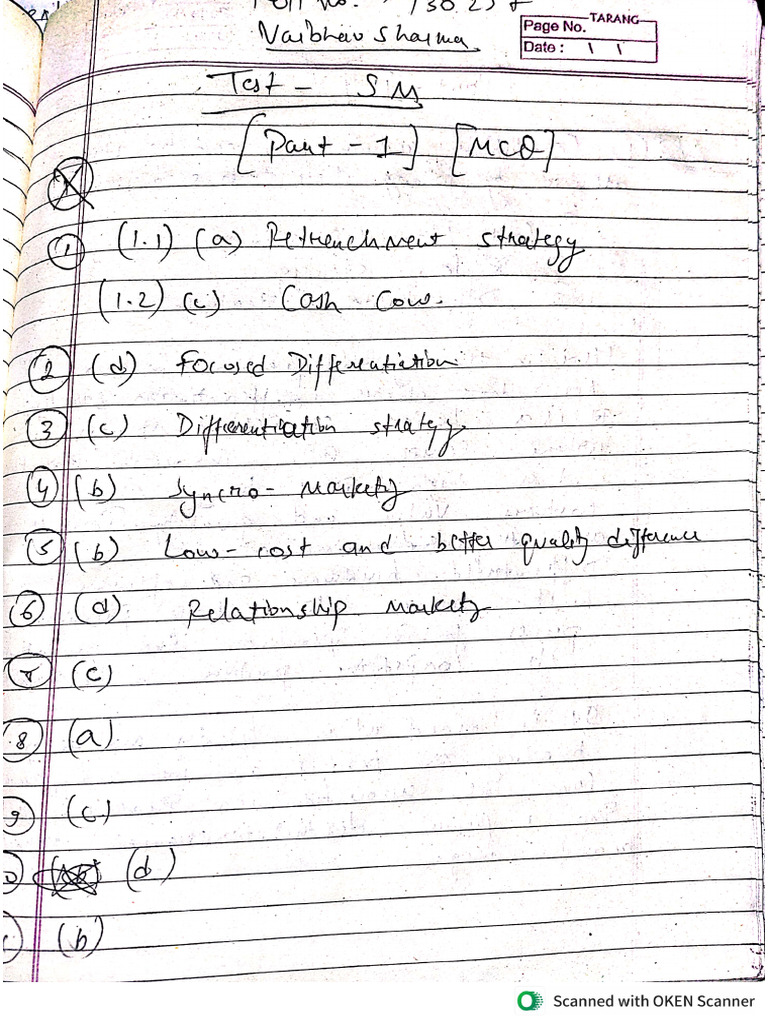 Vaibhav Sharma
TARANG
Page No.
Date :
Test - SM
[Part - 1] [MCQ]
① (1.1) (a) Retrenchment strategy
(1.2) (c) Cash Cow.
② (d) Focused Differentiation
③ (c) Differentiation strategy
④ (b) Syncro- Marketing
⑤ (b) Low-cost and better quality difference
⑥ (d) Relationship Marketing
(c)
⑧ (a)
⑨ (c)
(d)
(b)
Scanned with OKEN Scanner